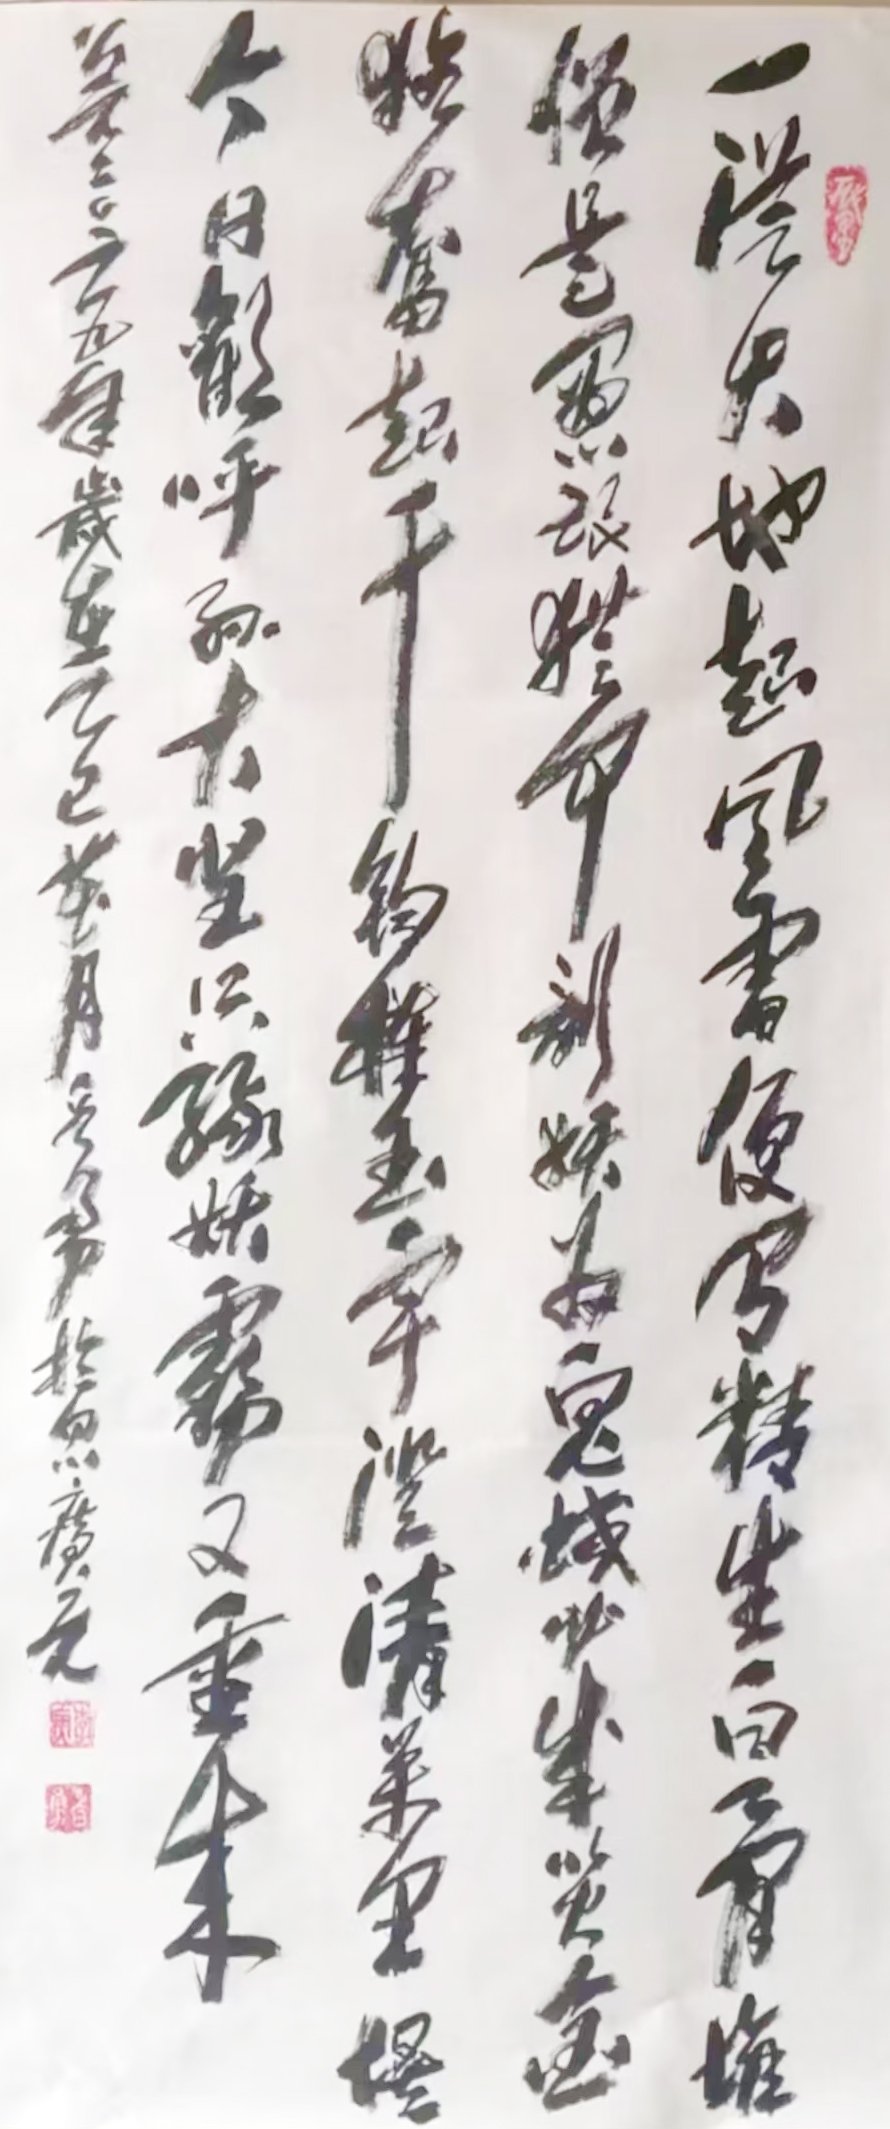 一從大地起風雷便有精生白骨堆
僧是愚氓猶可訓妖為鬼蜮必成災金
猴奮起千鈞棒玉宇澄清萬里埃
今日歡呼孫大聖只緣妖霧又重來
公元二〇二五年歲在乙巳月於四川廣元